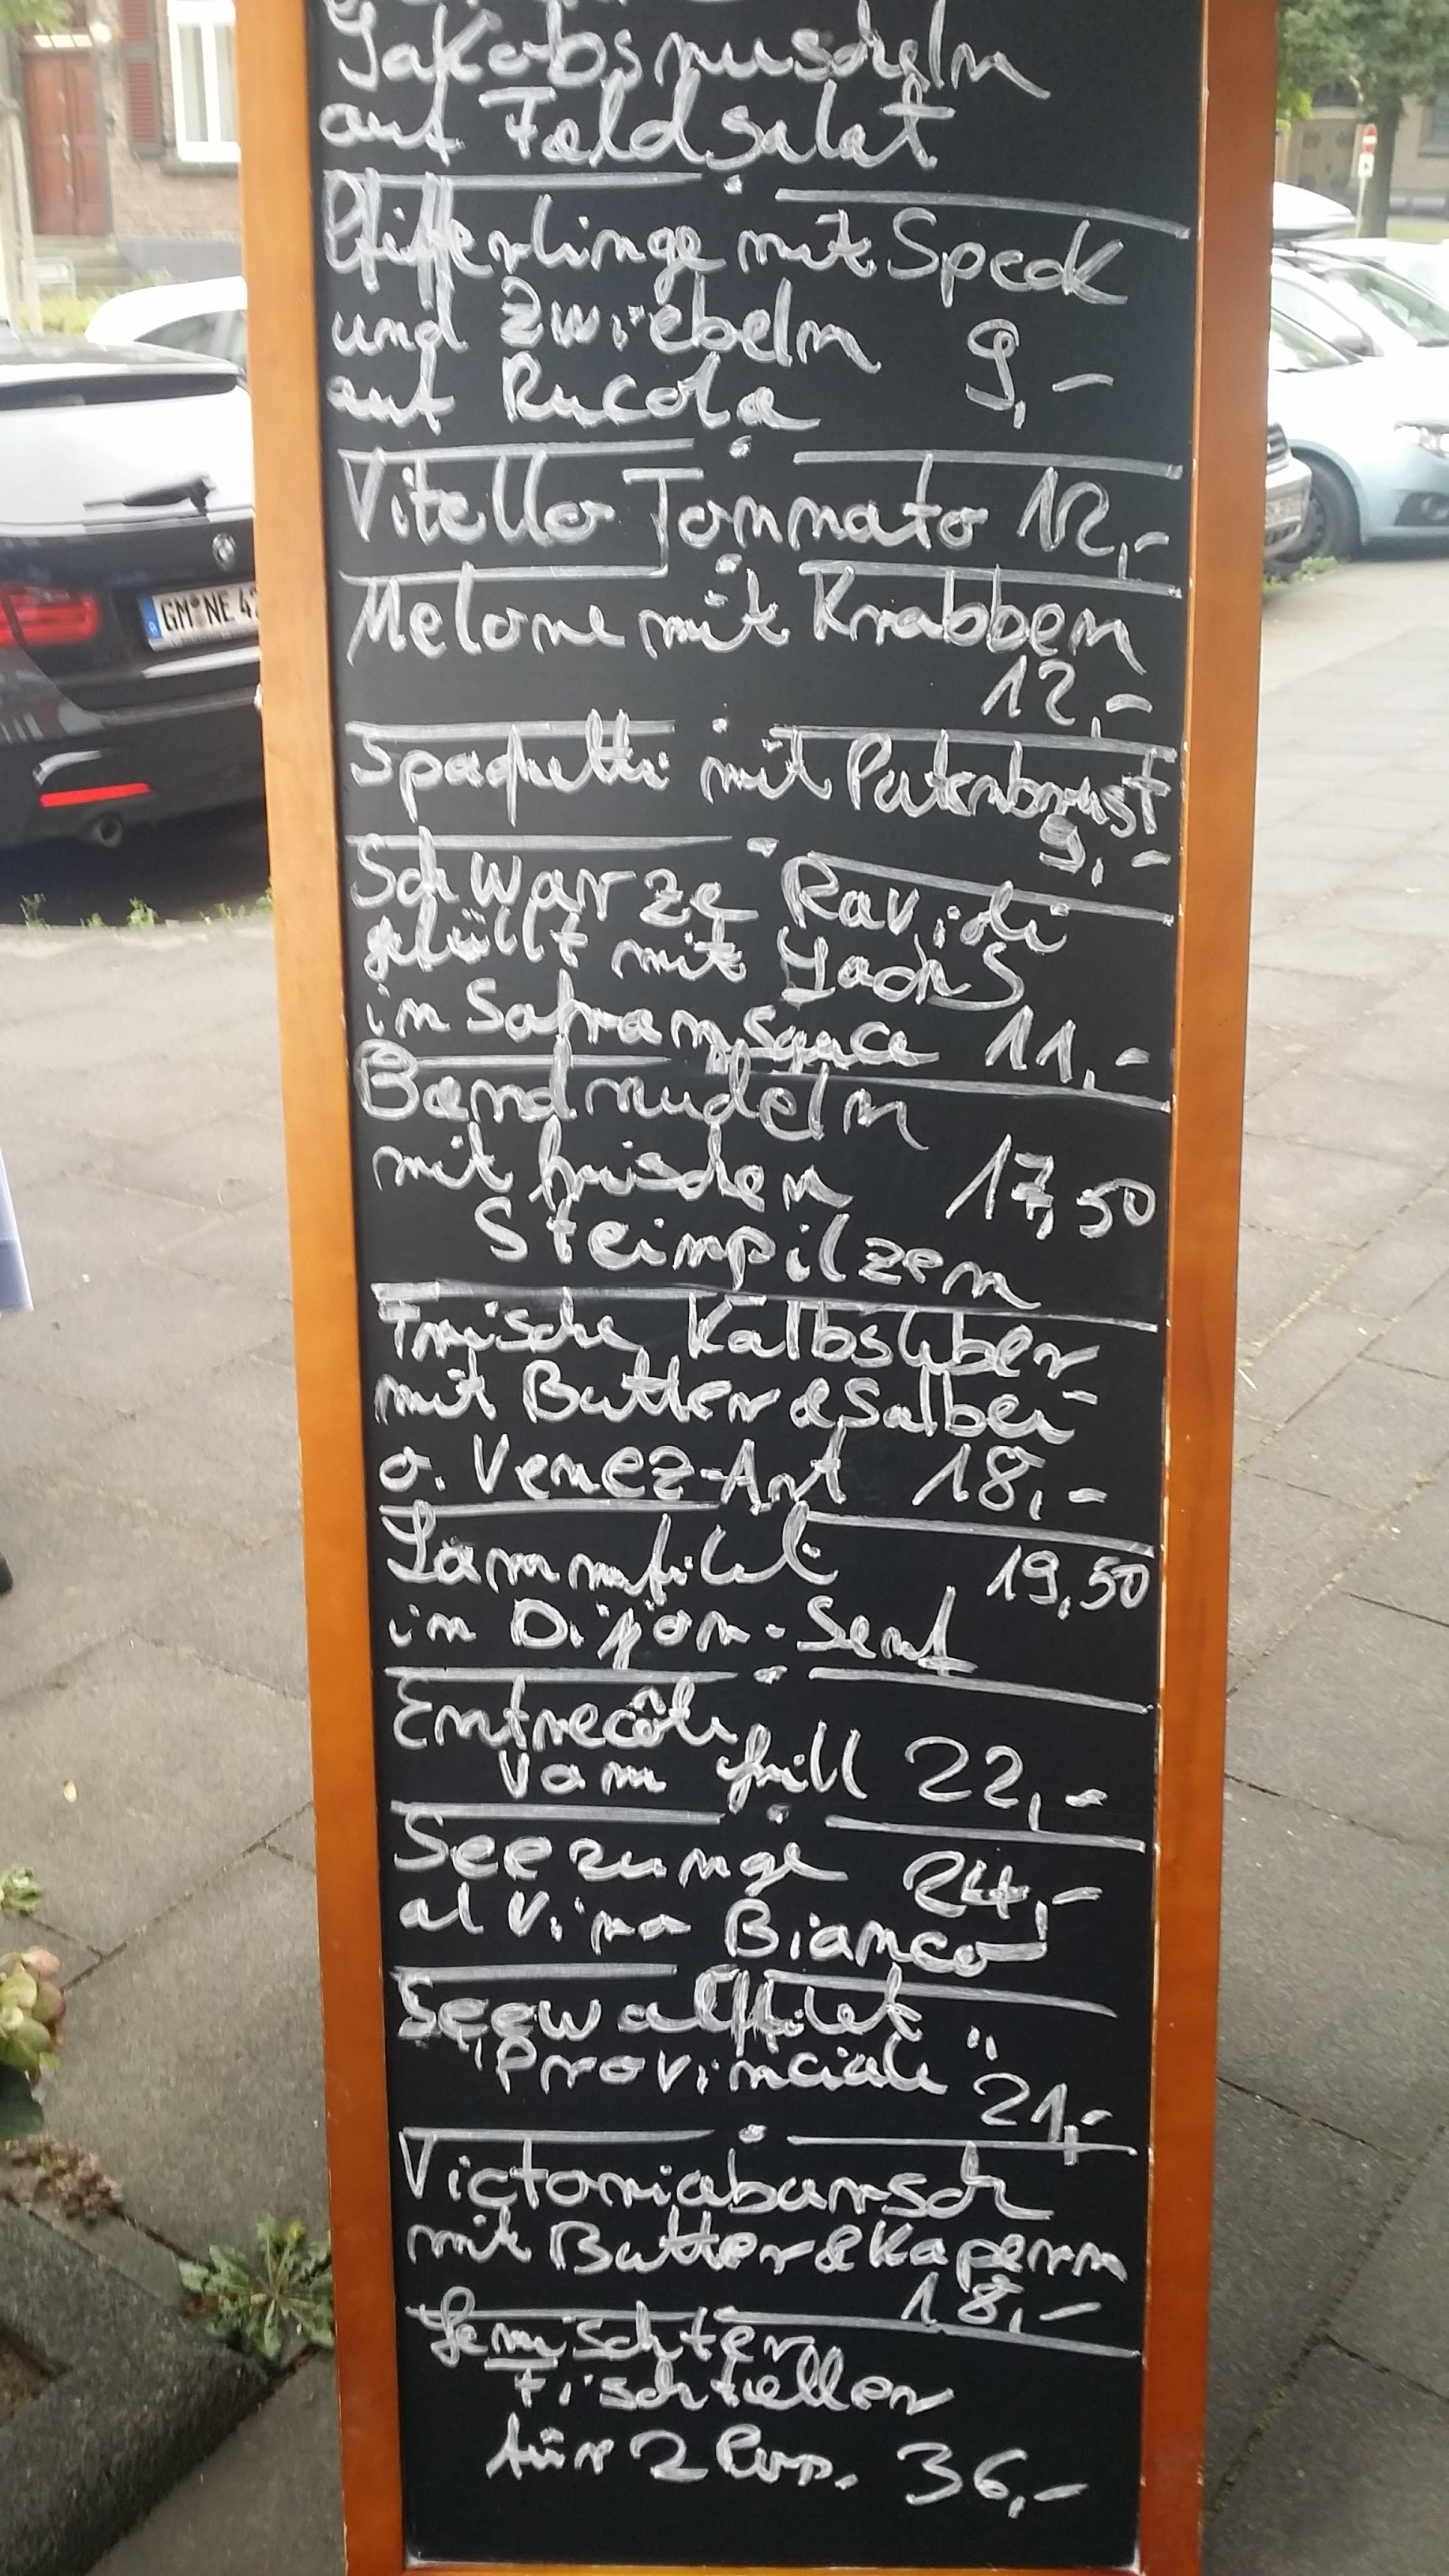 Jakobsmuscheln
auf Feldsalat
Pfifferlinge mit Speck
und Zwiebeln 9,-
auf Rucola
Vitello Tonnato 12,-
Melone mit Krabben
12,-
Spaghetti mit Putenbrust
9,-
Schwarze Ravioli
gefüllt mit Lachs
in Safransauce 11,-
Bandnudeln
mit frischen 17,50
Steinpilzen
Frische Kalbsleber
mit Butter & Salbei
o. Venez-Art 18,-
Lammfilet 19,50
in Dijon-Senf
Entrecôte
vom Grill 22,-
Seezunge 24,-
al Vino Bianco
Seewolffilet
"Provinciale"
21,-
Victoriabarsch
mit Butter & Kapern
18,-
Gemischter
Fischteller
für 2 Pers. 36,-
GM NE 42